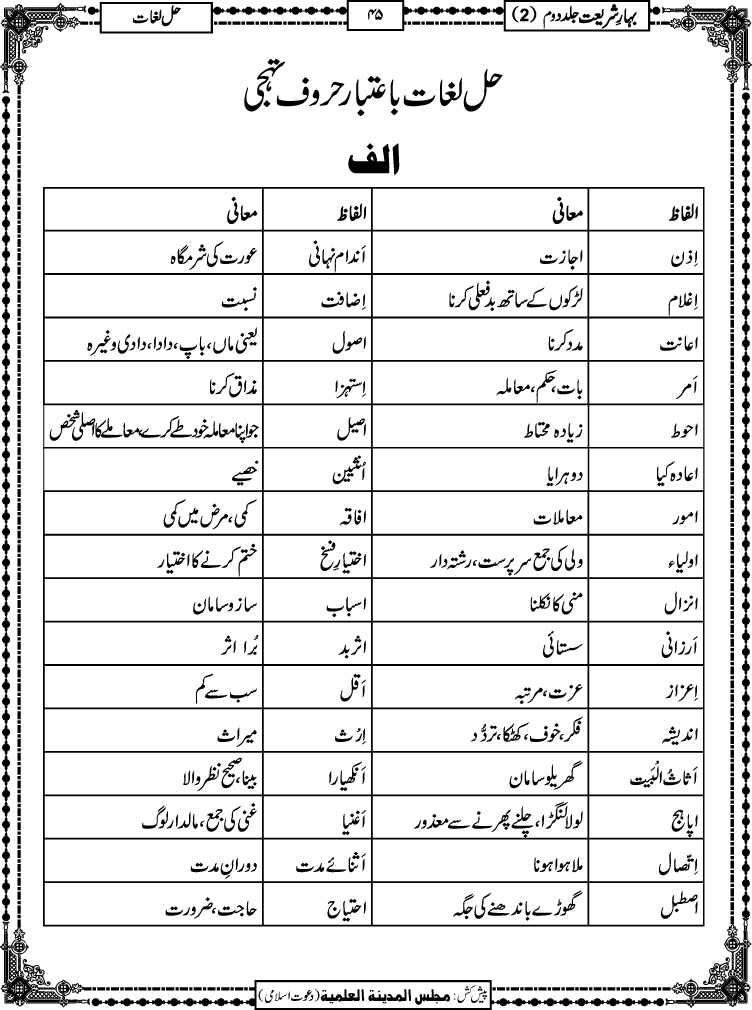 بہارِ شریعت جلد دوم (2)
۴۵
حل لغات
حل لغات باعتبار حروف تہجی
الف
الفاظ معانی الفاظ معانی
اِذن اجازت اَندام نہانی عورت کی شرمگاہ
اِغلام لڑکوں کے ساتھ بدفعلی کرنا اِضافت نسبت
اعانت مدد کرنا اصول یعنی ماں، باپ، دادا، دادی وغیرہ
اَمر بات، حکم، معاملہ اِستہزا مذاق کرنا
احوط زیادہ محتاط اصیل جو اپنا معاملہ خود طے کرے، معاملے کا اصلی شخص
اعادہ کیا دوہرایا اُنثیین خصیے
امور معاملات افاقہ کمی، مرض میں کمی
اولیاء ولی کی جمع سرپرست، رشتہ دار اختیارِ فسخ ختم کرنے کا اختیار
انزال منی کا نکلنا اسباب سازوسامان
اَرزانی سستائی اثر بد بُرا اثر
اِعزاز عزت، مرتبہ اَقل سب سے کم
اندیشہ فکر، خوف، کھٹکا، تردُّد اِرْث میراث
اَثاثُ الْبَیت گھریلو سامان اَنکھیارا بینا، صحیح نظر والا
اپاہج لولا لنگڑا، چلنے پھرنے سے معذور اَغنیا غنی کی جمع، مالدار لوگ
اِتّصال ملا ہوا ہونا اَثنائے مدت دورانِ مدت
اصطبل گھوڑے باندھنے کی جگہ احتیاج حاجت، ضرورت
پیش کش: مجلس المدینۃ العلمیۃ (دعوت اسلامی)